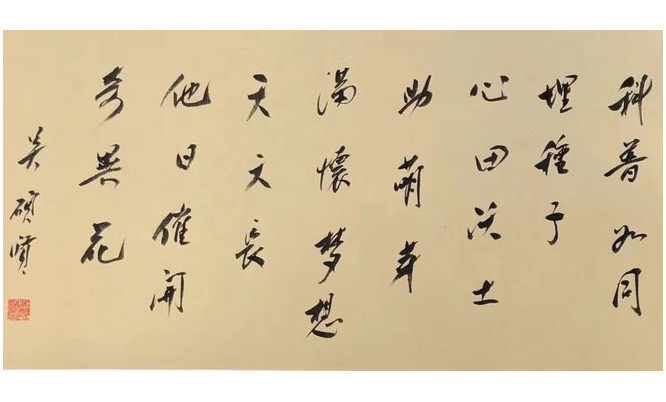 科普如同
埋種子
心田沃土
助萌芽
滿懷夢想
天文長
他日催開
奇異花
吴碩賢